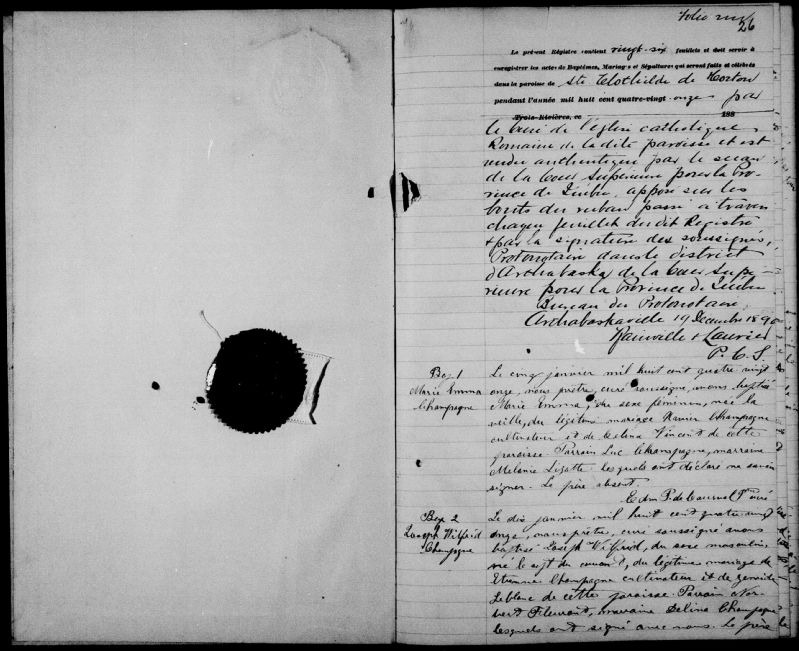 Folio
26
Le présent Régistre contient vingt-six feuillets et doit servir à
enregistrer les actes de Baptêmes, Mariages et Sépultures qui seront faits et célébrés
dans la paroisse de Ste Clothilde de Horton
pendant l'année mil huit cent quatre-vingt-onze par
Trois-Rivières, ce 188
le Curé de l'église catholique
Romaine de la dite paroisse et est
rendu authentique par le sceau
de la Cour Supérieure pour la Pro-
vince de Québec apposé sur les
bouts du ruban passé à travers
chaque feuillet du dit Registre
& par la signature des soussignés,
Protonotaire dans le district
d'Arthabaska de la Cour Supé-
rieure pour la Province de Québec
Bureau du Protonotaire
Arthabaskaville 19 Decembre 1890
Rainville & Laurier
P. C. S.
Bap 1
Marie Emma
Champagne
Le cinq janvier mil huit cent quatre vingt
onze, nous prêtre, curé soussigné, avons baptisé
Marie Emma, du sexe féminin, née la
veille, du légitime mariage Xavier Champagne
cultivateur et de Célina Vincent de cette
paroisse. Parrain Luc Champagne, marraine
Mélanie Lizotte lesquels ont déclaré ne savoir
signer. Le père absent.
Edm P. de Courval Ptre curé
Bap 2
Joseph Wilfrid
Champagne
Le dix janvier mil huit cent quatre vingt
onze, nous prêtre, curé soussigné avons
baptisé Joseph Wilfrid, du sexe masculin,
né le sept du courant, du légitime mariage de
Etienne Champagne cultivateur et de
Leblanc de cette paroisse. Parrain Nor-
bert Fleurant, marraine Délina Champagne
lesquels ont signé avec nous. Le père